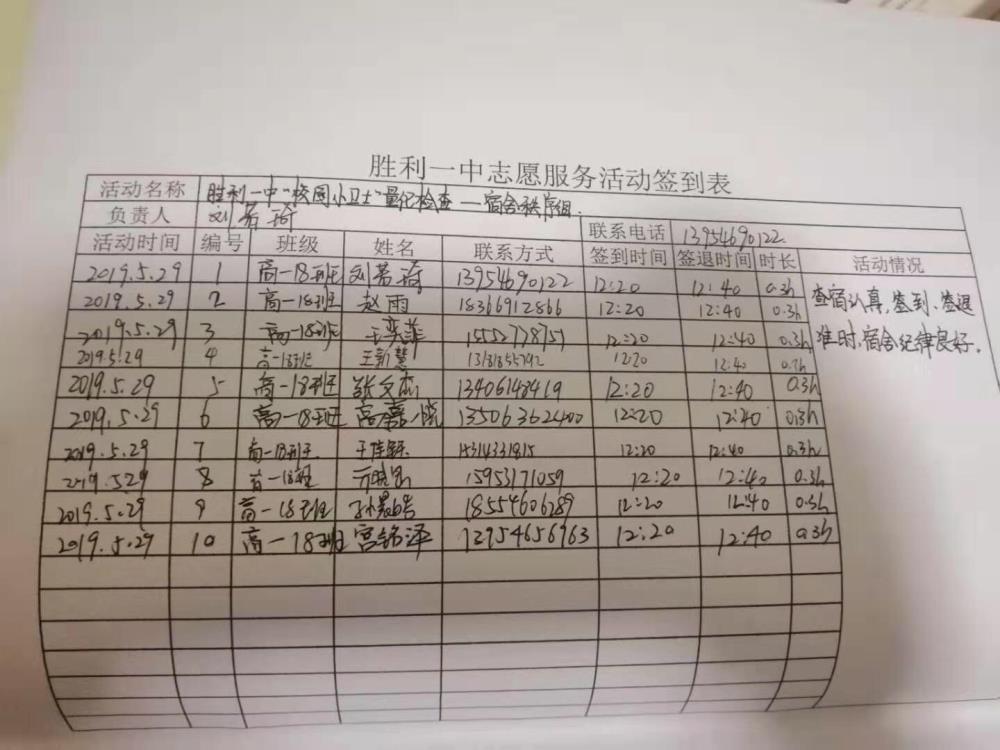 胜利一中志愿服务活动签到表
活动名称 胜利一中"校园小卫士"量化检查—宿舍秩序组
负责人 刘若琦 联系电话 13954690122
活动时间 编号 班级 姓名 联系方式 签到时间 签退时间 时长 活动情况
2019.5.29 1 高一18班 刘若琦 13954690122 12:20 12:40 0.3h
2019.5.29 2 高一18班 赵雨 18366912866 12:20 12:40 0.3h
2019.5.29 3 高一18班 王奕菲 12:20 12:40 0.3h
2019.5.29 4 高一18班 王新慧 12:20 12:40
2019.5.29 5 高一18班 张文杰 13406148419 12:20 12:40 0.3h
2019.5.29 6 高一18班 高嘉悦 13506362400 12:20 12:40 0.3h
2019.5.29 7 高一18班 15314331815 12:20 12:40 0.3h
2019.529 8 高一18班 15953171059 12:20 12:40 0.3h
2019.5.29 9 高一18班 18554606289 12:20 12:40 0.3h
2019.5.29 10 高一18班 宫铭泽 12:20 12:40 0.3h
查宿认真,签到、签退
准时,宿舍纪律良好.